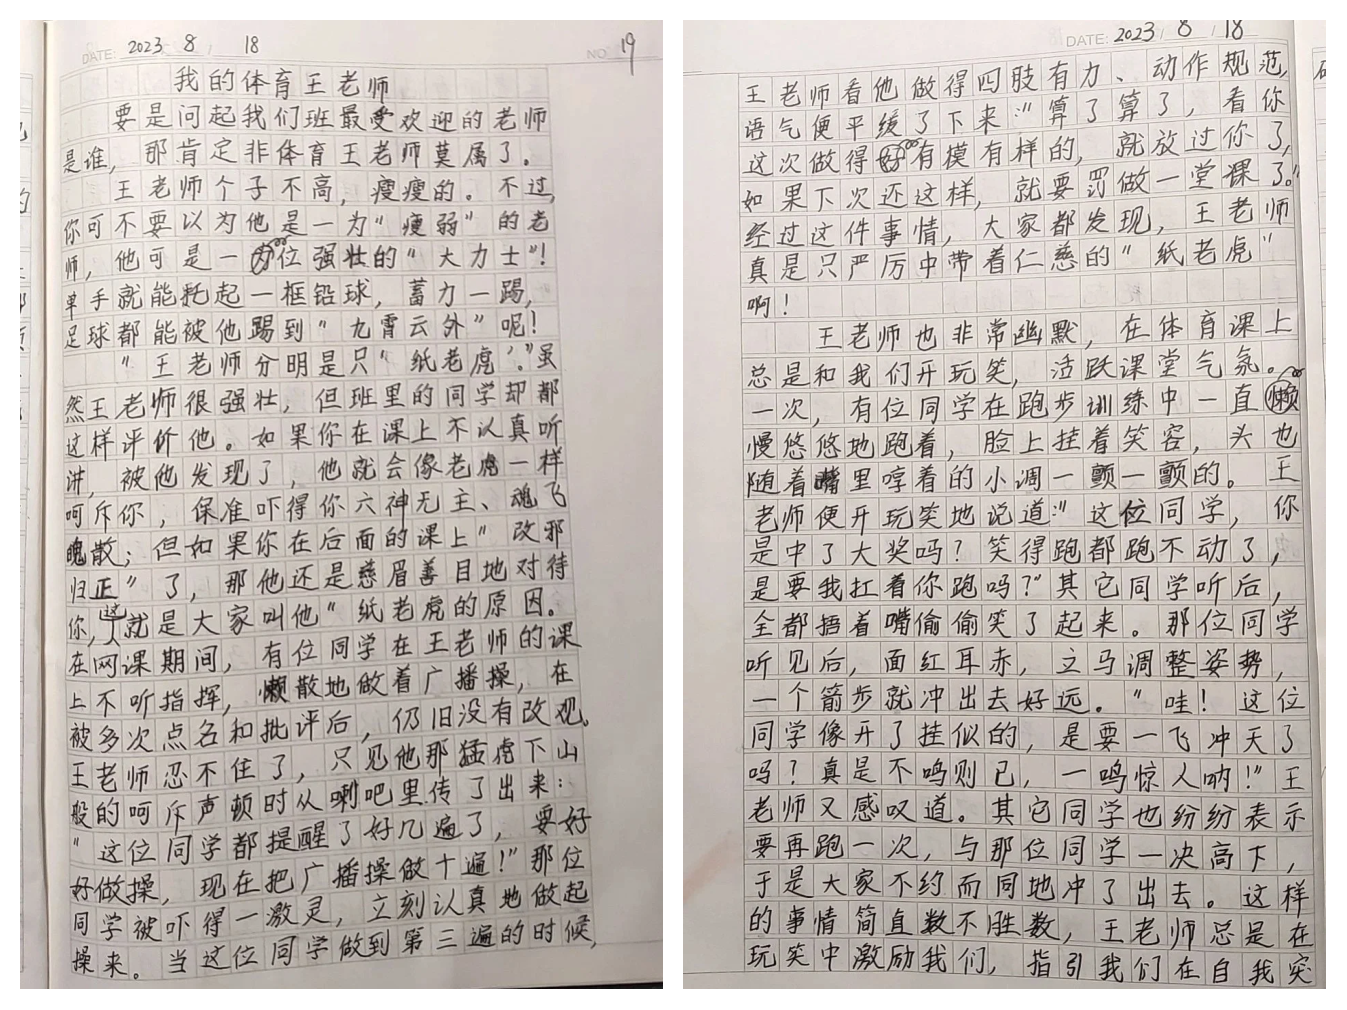 DATE: 2023 8 / 18
NO. 19
我的体育王老师
要是问起我们班最受欢迎的老师
是谁，那肯定非体育王老师莫属了。
王老师个子不高，瘦瘦的。不过，
你可不要以为他是一为“瘦弱”的老
师，他可是一位强壮的“大力士”！
单手就能托起一框铅球，蓄力一踢，
足球都能被他踢到“九霄云外”呢！
“王老师分明是只“纸老虎’。”虽
然王老师很强壮，但班里的同学却都
这样评价他。如果你在课上不认真听
讲，被他发现了，他就会像老虎一样
呵斥你，保准吓得你六神无主、魂飞
魄散；但如果你在后面的课上“改邪
归正”了，那他还是慈眉善目地对待
你，这就是大家叫他“纸老虎的原因。
在网课期间，有位同学在王老师的课
上不听指挥，懒散地做着广播操，在
被多次点名和批评后，仍旧没有改观。
王老师忍不住了，只见他那猛虎下山
般的呵斥声顿时从喇吧里传了出来：
“这位同学都提醒了好几遍了，要好
好做操，现在把广播操做十遍！”那位
同学被吓得一激灵，立刻认真地做起
操来。当这位同学做到第三遍的时候，
DATE: 2023 / 8 / 18
王老师看他做得四肢有力、动作规范，
语气便平缓了下来：“算了算了，看你
这次做得有模有样的，就放过你了，
如果下次还这样，就要罚做一堂课了。”
经过这件事情，大家都发现，王老师
真是只严厉中带着仁慈的“纸老虎”
啊！
王老师也非常幽默，在体育课上
总是和我们开玩笑，活跃课堂气氛。
一次，有位同学在跑步训练中一直
慢悠悠地跑着，脸上挂着笑容，头也
随着嘴里哼着的小调一颤一颤的。王
老师便开玩笑地说道：“这位同学，你
是中了大奖吗？笑得跑都跑不动了，
是要我扛着你跑吗？”其它同学听后，
全都捂着嘴偷偷笑了起来。那位同学
听见后，面红耳赤，立马调整姿势，
一个箭步就冲出去好远。“哇！这位
同学像开了挂似的，是要一飞冲天了
吗？真是不鸣则已，一鸣惊人呐！”王
老师又感叹道。其它同学也纷纷表示
要再跑一次，与那位同学一决高下，
于是大家不约而同地冲了出去。这样
的事情简直数不胜数，王老师总是在
玩笑中激励我们，指引我们在自我突